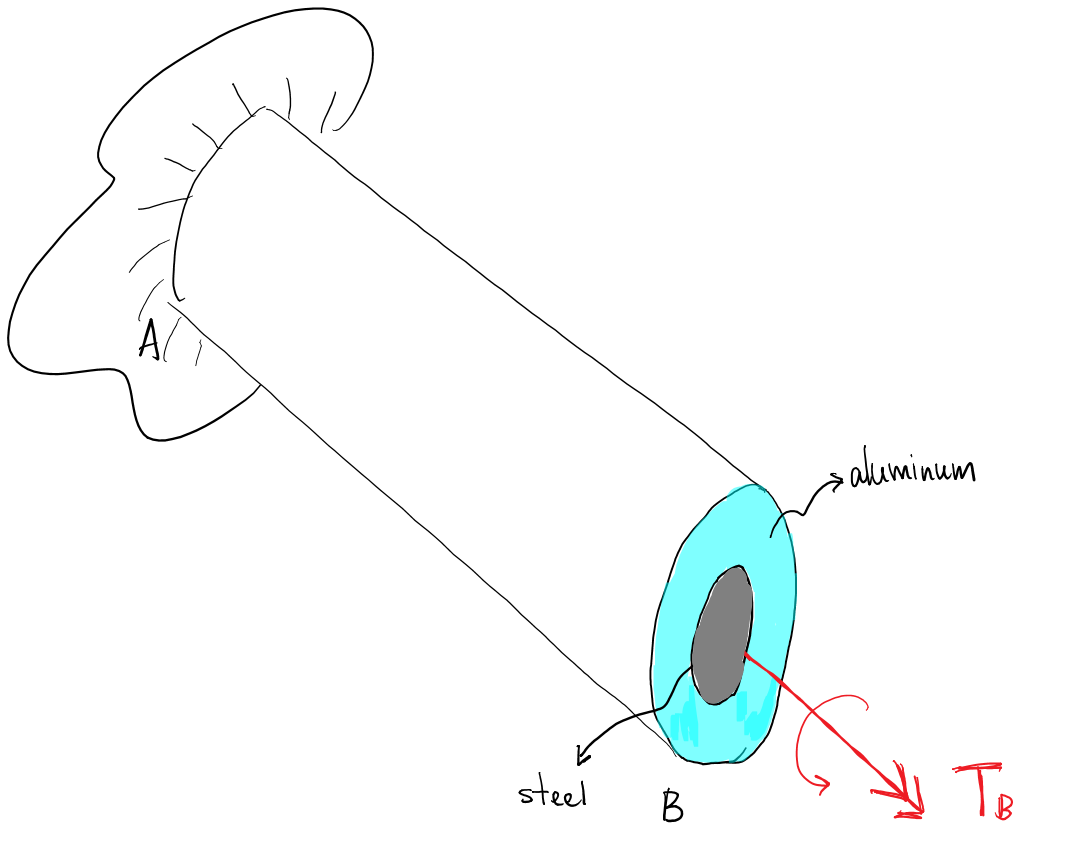 A
aluminum
steel
B
T_B